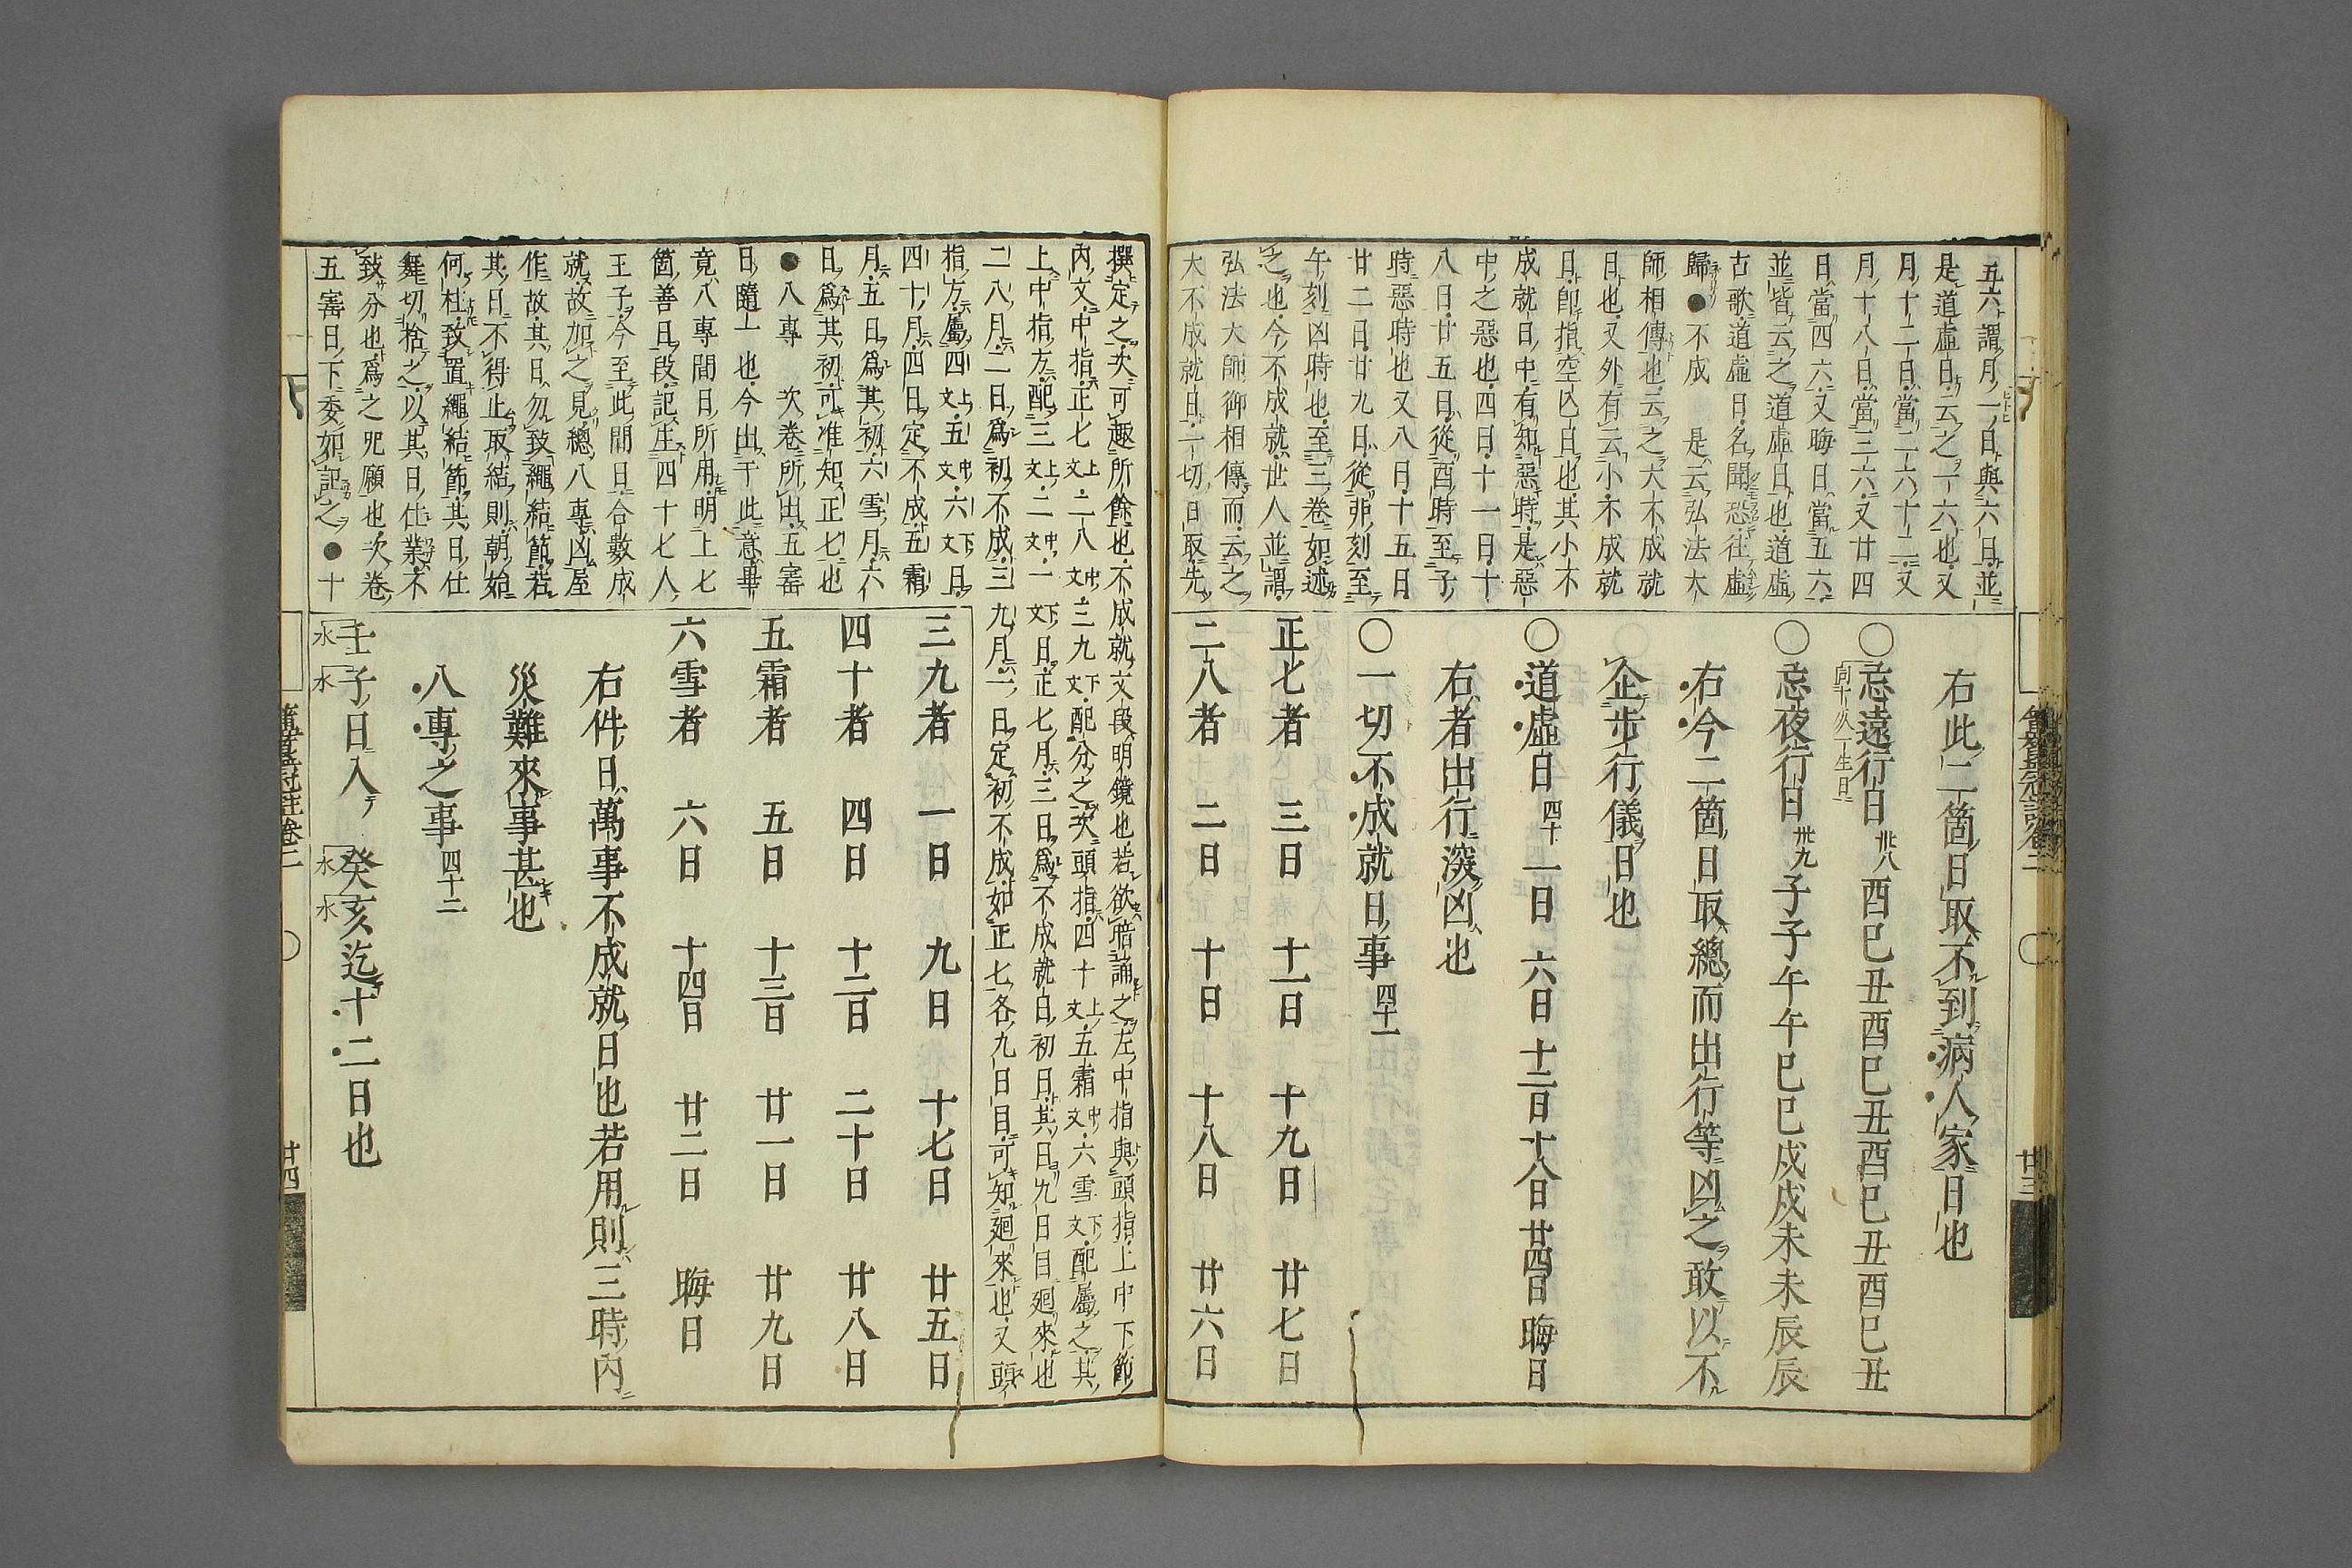 五六謂月一日與六日並
是道虛日云之一六也又
月十二日當二六十二又
月十八日當三六又廿四
日當四六又晦日當五六
並皆云之道虛日也道虛
古歌道虛日名聞恐往虛
歸●不成 是云弘法大
師相傳也云之大不成就
日也又外有云小不成就
日卽指空亡日也其小不
成就日中有知惡時是惡
中之惡也四日十一日十
八日廿五日從酉時至子
時惡時也又八日十五日
廿二日廿九日從卯刻至
午刻凶時也至三卷如述
之也今不成就世人並謂
弘法大師御相傳而云之
大不成就日一切日取先
右此二箇日取不到病人家日也
〇忌遠行日 卅八 酉巳丑酉巳丑酉巳丑酉巳丑
〇忌夜行日 卅九 子子午午巳巳戍戍未未辰辰
右今二箇日取總而出行等凶之敢以不
企步行儀日也
〇道虛日 四十 一日 六日 十二日 十八日 廿四日 晦日
右者出行深凶也
〇一切不成就日事 四十一
正七者 三日 十一日 十九日 廿七日
二八者 二日 十日 十八日 廿六日
廿三
撰定之次可趣所餘也不成就文段明鏡也若欲暗誦之左中指與頭指上中下節
內文中指正七上文二八中文三九下文配分之次頭指四十上文五霜中文六雪下文配屬之其
上中指方配三上文二中文一下文日正七月三日爲不成就日初日其日九日目廻來也
二八月二日爲初不成三九月一日定初不成如正七各九日目可知廻來也又頭
指方屬四上文五中文六下文日
四十月四日定不成五霜
月五日爲其初六雪月六
日爲其初可准知正七也
●八專 次卷所出五審
日隨一也今出于此意畢
竟八專間日所用明上七
箇善日段記庄四十七人
王子今至此間日合數成
就故加之見總八專凶屋
作故其日勿致繩結節若
其日不得止取結則朝始
何杜致置繩結節其日仕
舞切捨之以其日仕業不
致分也爲之呪願也次卷
五審日下委如記之●十
三九者 一日 九日 十七日 廿五日
四十者 四日 十二日 二十日 廿八日
五霜者 五日 十三日 廿一日 廿九日
六雪者 六日 十四日 廿二日 晦日
右件日萬事不成就日也若用則三時內
災難來事甚也
八專之事 四十二
壬子日入 癸亥迄十二日也
水 水 水 水
廿四